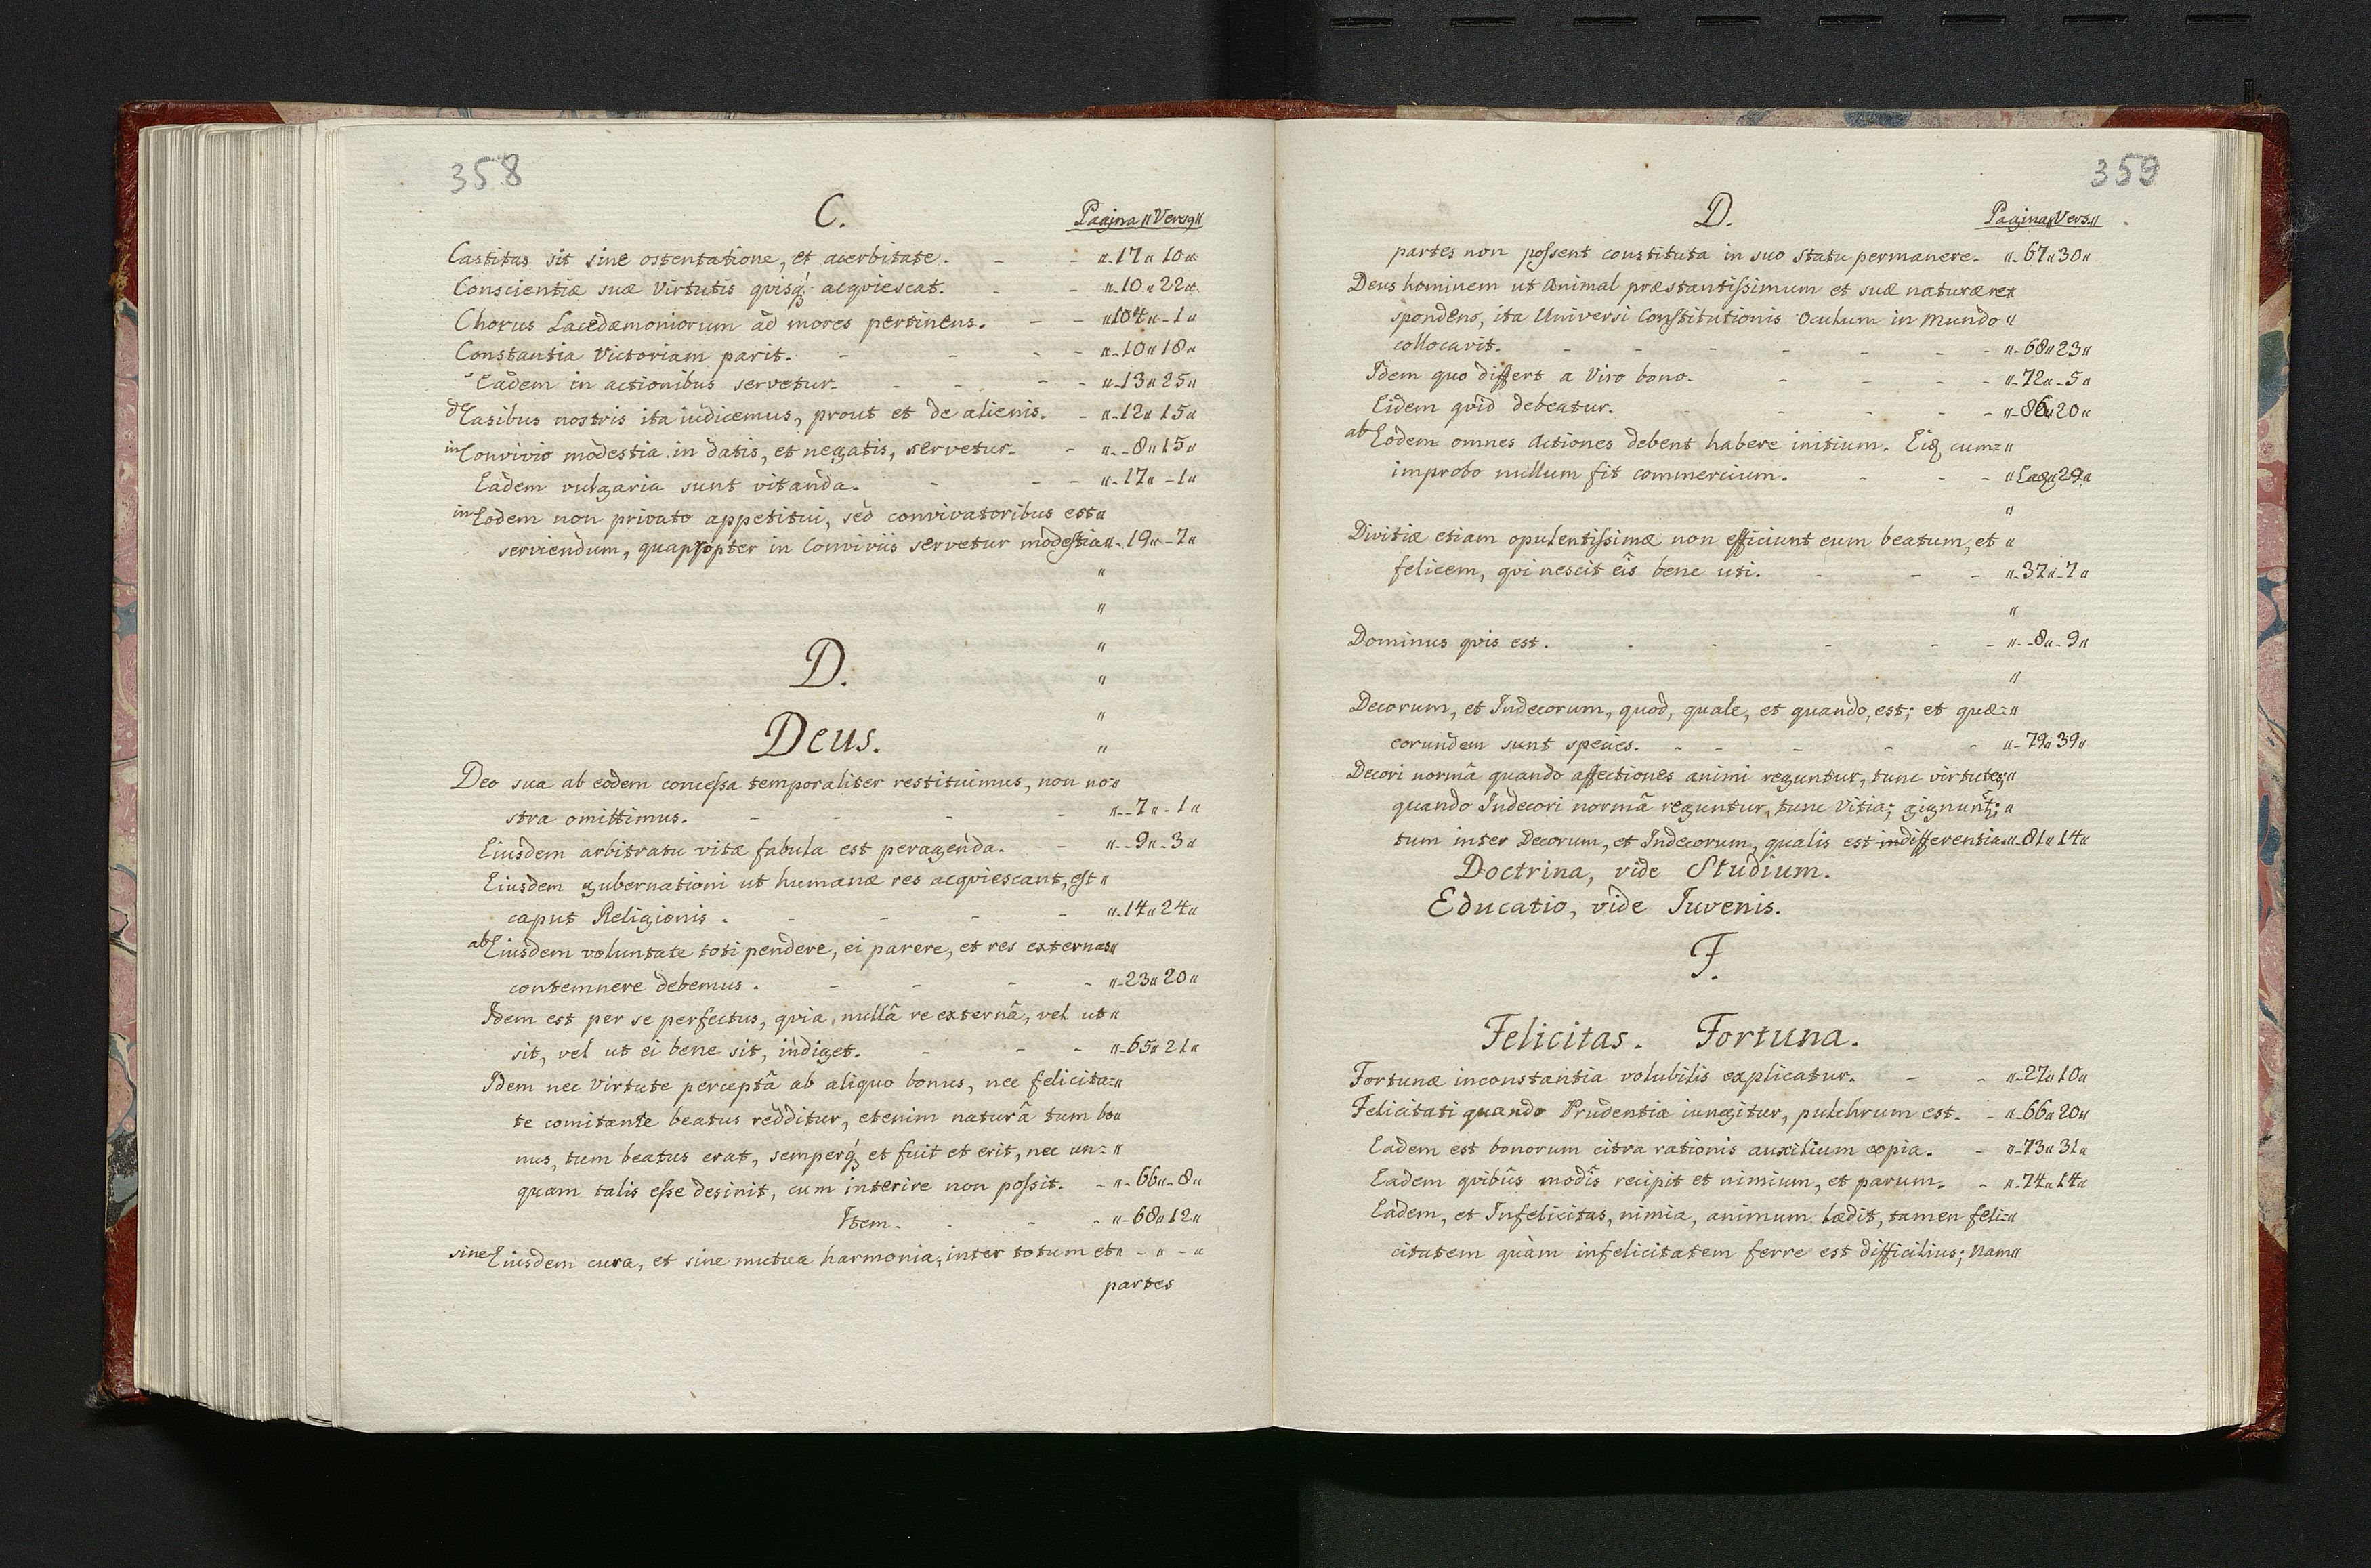 358
C. Pagina „ Versq „
Castitas sit sine ostentatione, et acerbitate. - - „-17„10„
Conscientiæ suæ Virtutis qvisq́; acqviescat. - - „-10„22„
Chorus Lacedæmoniorum ad mores pertinens. - - „104„-1„
Constantia Victoriam parit. - - - - „-10„18„
Eadem in actionibus servetur. - - - - „-13„25„
de Casibus nostris ita iudicemus, prout et de alienis. - „-12„15„
in Convivio modestia in datis, et negatis, servetur. - „--8„15„
Eadem vulgaria sunt vitanda. - - - „-17„-1„
in Eodem non privato appetitui, sed convivatoribus est„
serviendum, quapropter in Conviviis servetur modestia„-19„-7„
„
„
„
D.
„
„
Deus. „
Deo sua ab eodem concessa temporaliter restituimus, non no=„
stra omittimus. - - - - „--7„-1„
Eiusdem arbitratu vitæ fabula est peragenda. - „--9„-3„
Eiusdem gubernationi ut humanæ res acqviescant, est „
caput Religionis. - - - - „-14„24„
ab Eiusdem voluntate toti pendere, ei parere, et res externas„
contemnere debemus. - - - - „-23„20„
Idem est per se perfectus, qvia, nullâ re externâ, vel ut„
sit, vel ut ei bene sit, indiget. - - - „-65„21„
Idem nec Virtute perceptâ ab aliquo bonus, nec felicita=„
te comitante beatus redditur, etenim naturâ tum bo„
nus, tum beatus erat, semperq́; et fuit et erit, nec un=„
quam talis esse desinit, cum interire non possit. - „-66„-8„
Item. - - - „-68„12„
sine Eiusdem cura, et sine mutua harmonia, inter totum et„ - „ - „
partes
359
D. Pagina„Vers.„
partes non possent constituta in suo statu permanere. „-67„30„
Deus hominem ut Animal præstantissimum et suæ naturæ re„
spondens, ita Universi Constitutionis Oculum in Mundo „
collocavit. - - - - - - - „-68„23„
Idem quo differt a Viro bono. - - - - „-72„-5„
Eidem qvid debeatur. - - - - - „-86„20„
ab Eodem omnes Actiones debent habere initium. Eiq; cum=„
improbo nullum fit commercium. - - - „Eaq;29„
„
Divitiæ etiam opulentissimæ non efficiunt eum beatum, et „
felicem, qvi nescit eîs bene uti. - - - „-37„-7„
„
Dominus qvis est. - - - - - „--8„-9„
„
Decorum, et Indecorum, quod, quale, et quando, est; et quæ=„
eorundem sunt species. - - - - - „-79„39„
Decori normâ quando affectiones animi reguntur, tunc virtutes;„
quando Indecori normâ reguntur, tunc Vitia; gignunt̃; „
tum inter Decorum, et Indecorum, qualis est indifferentia„-81„14„
Doctrina, vide Studium.
Educatio, vide Iuvenis.
F.
Felicitas. Fortuna.
Fortunæ inconstantia volubilis explicatur. - - „-27„10„
Felicitati quando Prudentia iungitur, pulchrum est. - „-66„20„
Eadem est bonorum citra rationis auxilium copia. - „-73„31„
Eadem qvibûs modîs recipit et nimium, et parum. - „-74„14„
Eadem, et Infelicitas, nimia, animum lædit, tamen feli=„
citatem quàm infelicitatem ferre est difficilius; Nam„